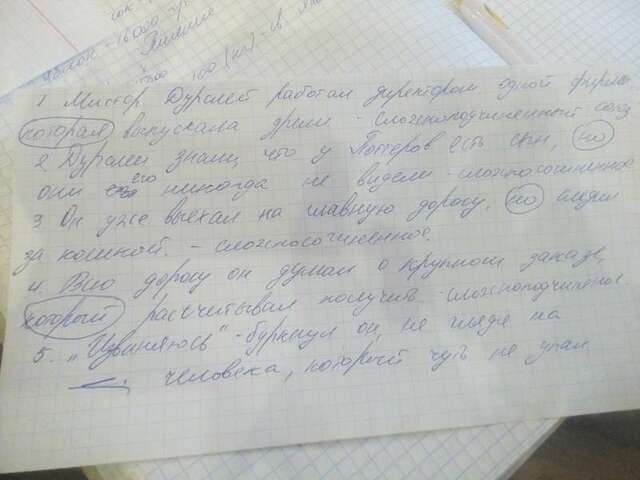 16000
Решение
100 (кг) - св
1 Мистор Дурслей работал директором одной фирмы,
которая выпускала дрели - сложноподчиненный союз
2 Дурслеи знали, что у Поттеров есть сын, но
они его никогда не видели - сложносочиненное
3. Он уже выехал на главную дорогу, но следил
за кошкой. - сложносочиненное.
4. Всю дорогу он думал о крупном заказе,
который рассчитывал получить - сложноподчиненое
5. „Извиняюсь" - буркнул он, не глядя на
человека, который чуть не упал.